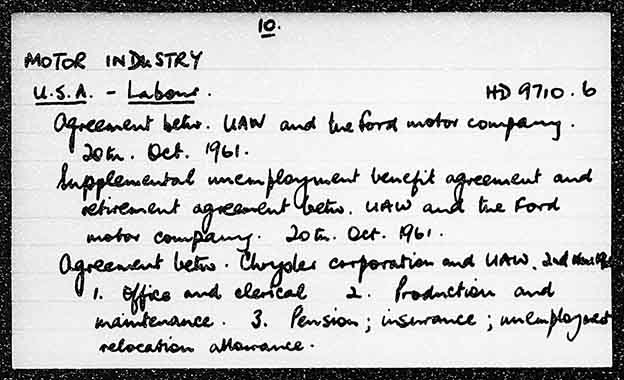 10.
MOTOR INDUSTRY
U.S.A. - Labour. HD 9710.6
Agreement betw. UAW and the Ford motor company.
20th. Oct. 1961.
Supplemental unemployment benefit agreement and
retirement agreement betw. UAW and the Ford
motor company. 20th. Oct. 1961.
Agreement betw. Chrysler corporation and UAW. 2nd Nov.
1. Office and clerical 2. Production and
maintenance. 3. Pension; insurance; unemployment
relocation allowance.